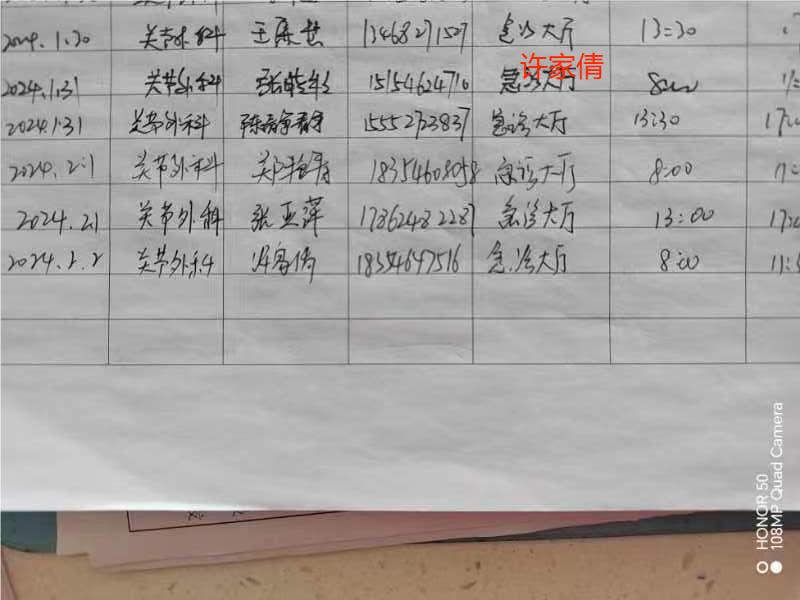 2024.1.30 关节外科 13468271527 急诊大厅 13:30
许家倩
2024.1.31 关节外科 15154624710 急诊大厅
2024.1.31 关节外科 15552723837 急诊大厅 13:30
2024.2.1 关节外科 18354608058 急诊大厅 8:00
2024.2.1 关节外科 张亚萍 17862482287 急诊大厅 13:00
2024.2.2 关节外科 18354647516 急诊大厅 8:00
HONOR 50
108MP Quad Camera